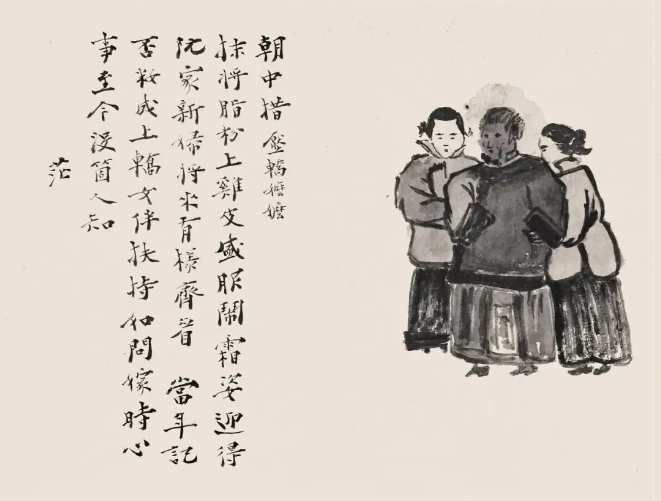 朝中措 壓轎嬤嬤
抹將脂粉上雞皮盛服鬧霜姿迎得
阮家新婦將來有樣齊眉 當年記
否籹成上轎女伴扶持如問嫁時心
事至今沒箇人知
茫